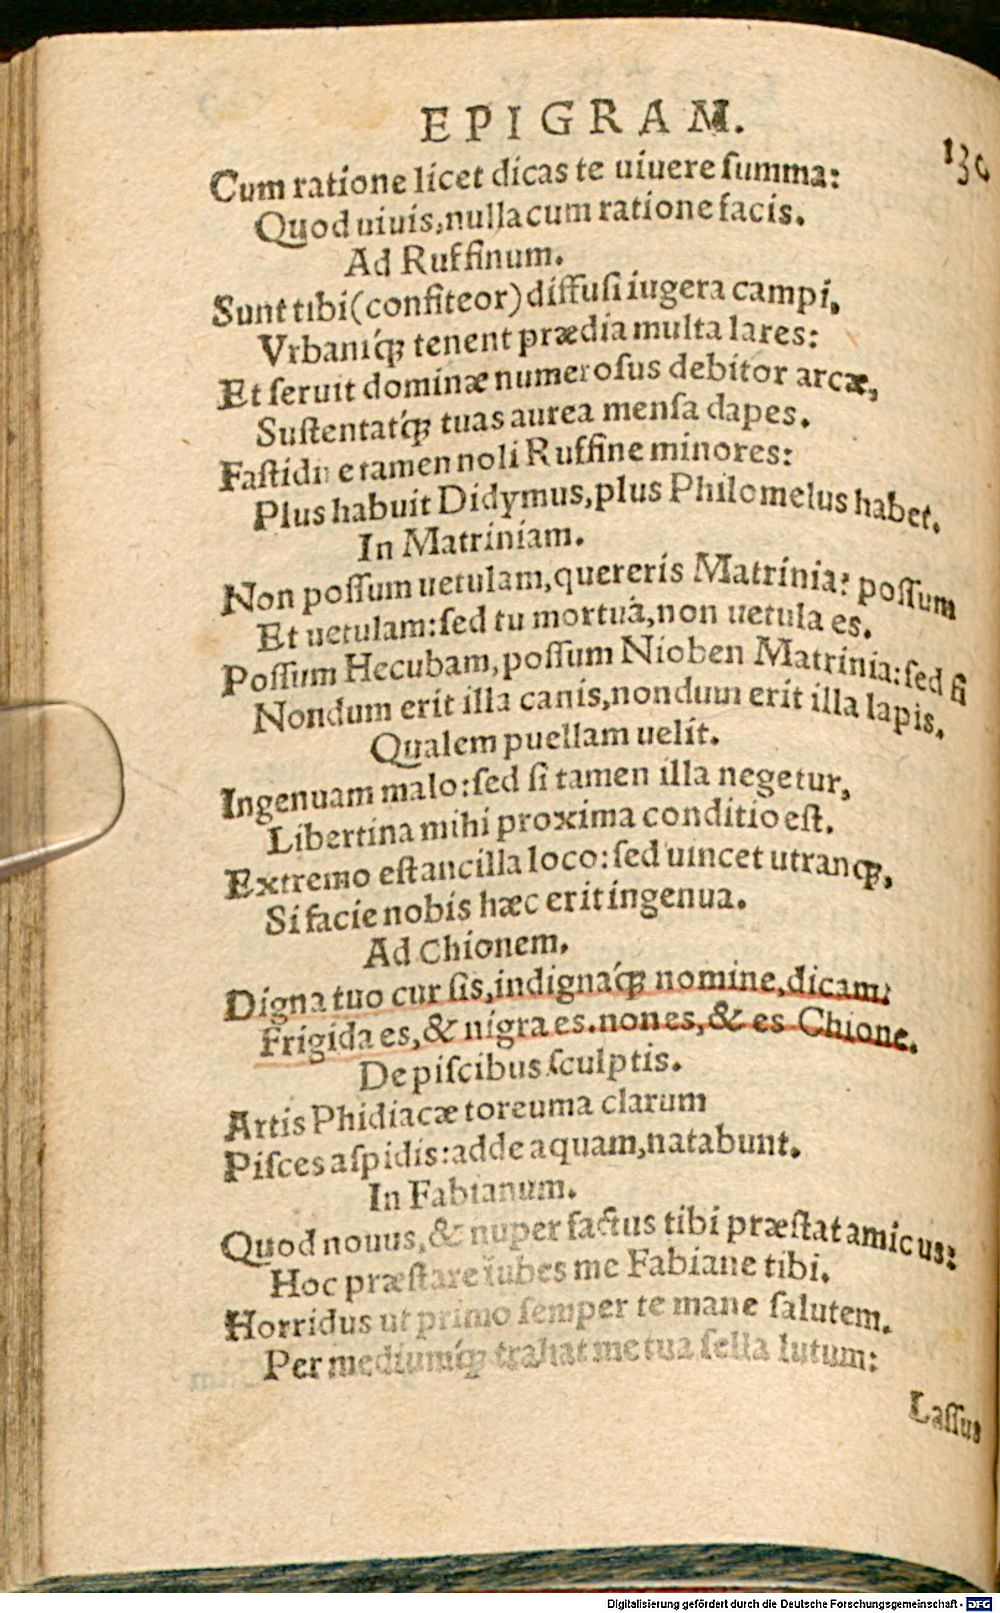 EPIGRAM.
130
Cum ratione licet dicas te uiuere ſumma:
Quod uiuis, nulla cum ratione facis.
Ad Ruffinum.
Sunt tibi (confiteor) diffuſi iugera campi,
Vrbaniq́; tenent prædia multa lares:
Et ſeruit dominæ numeroſus debitor arcæ,
Suſtentatq́; tuas aurea menſa dapes.
Faſtidire tamen noli Ruffine minores:
Plus habuit Didymus, plus Philomelus habet.
In Matriniam.
Non poſſum uetulam, quereris Matrinia: poſſum
Et uetulam: ſed tu mortua, non uetula es.
Poſſum Hecubam, poſſum Nioben Matrinia: ſed ſi
Nondum erit illa canis, nondum erit illa lapis.
Qualem puellam uelit.
Ingenuam malo: ſed ſi tamen illa negetur,
Libertina mihi proxima conditio eſt.
Extremo eſt ancilla loco: ſed uincet utranq;,
Si facie nobis hæc erit ingenua.
Ad Chionem.
Digna tuo cur ſis, indignaq́; nomine, dicam:
Frigida es, & nigra es. non es, & es Chione.
De piſcibus ſculptis.
Artis Phidiacæ toreuma clarum
Piſces aſpidis: adde aquam, natabunt.
In Fabianum.
Quod nouus, & nuper factus tibi præſtat amicus:
Hoc præſtare iubes me Fabiane tibi.
Horridus ut primo ſemper te mane ſalutem.
Per mediumq́; trahat me tua ſella lutum:
Laſſus
Digitalisierung gefördert durch die Deutsche Forschungsgemeinschaft - DFG